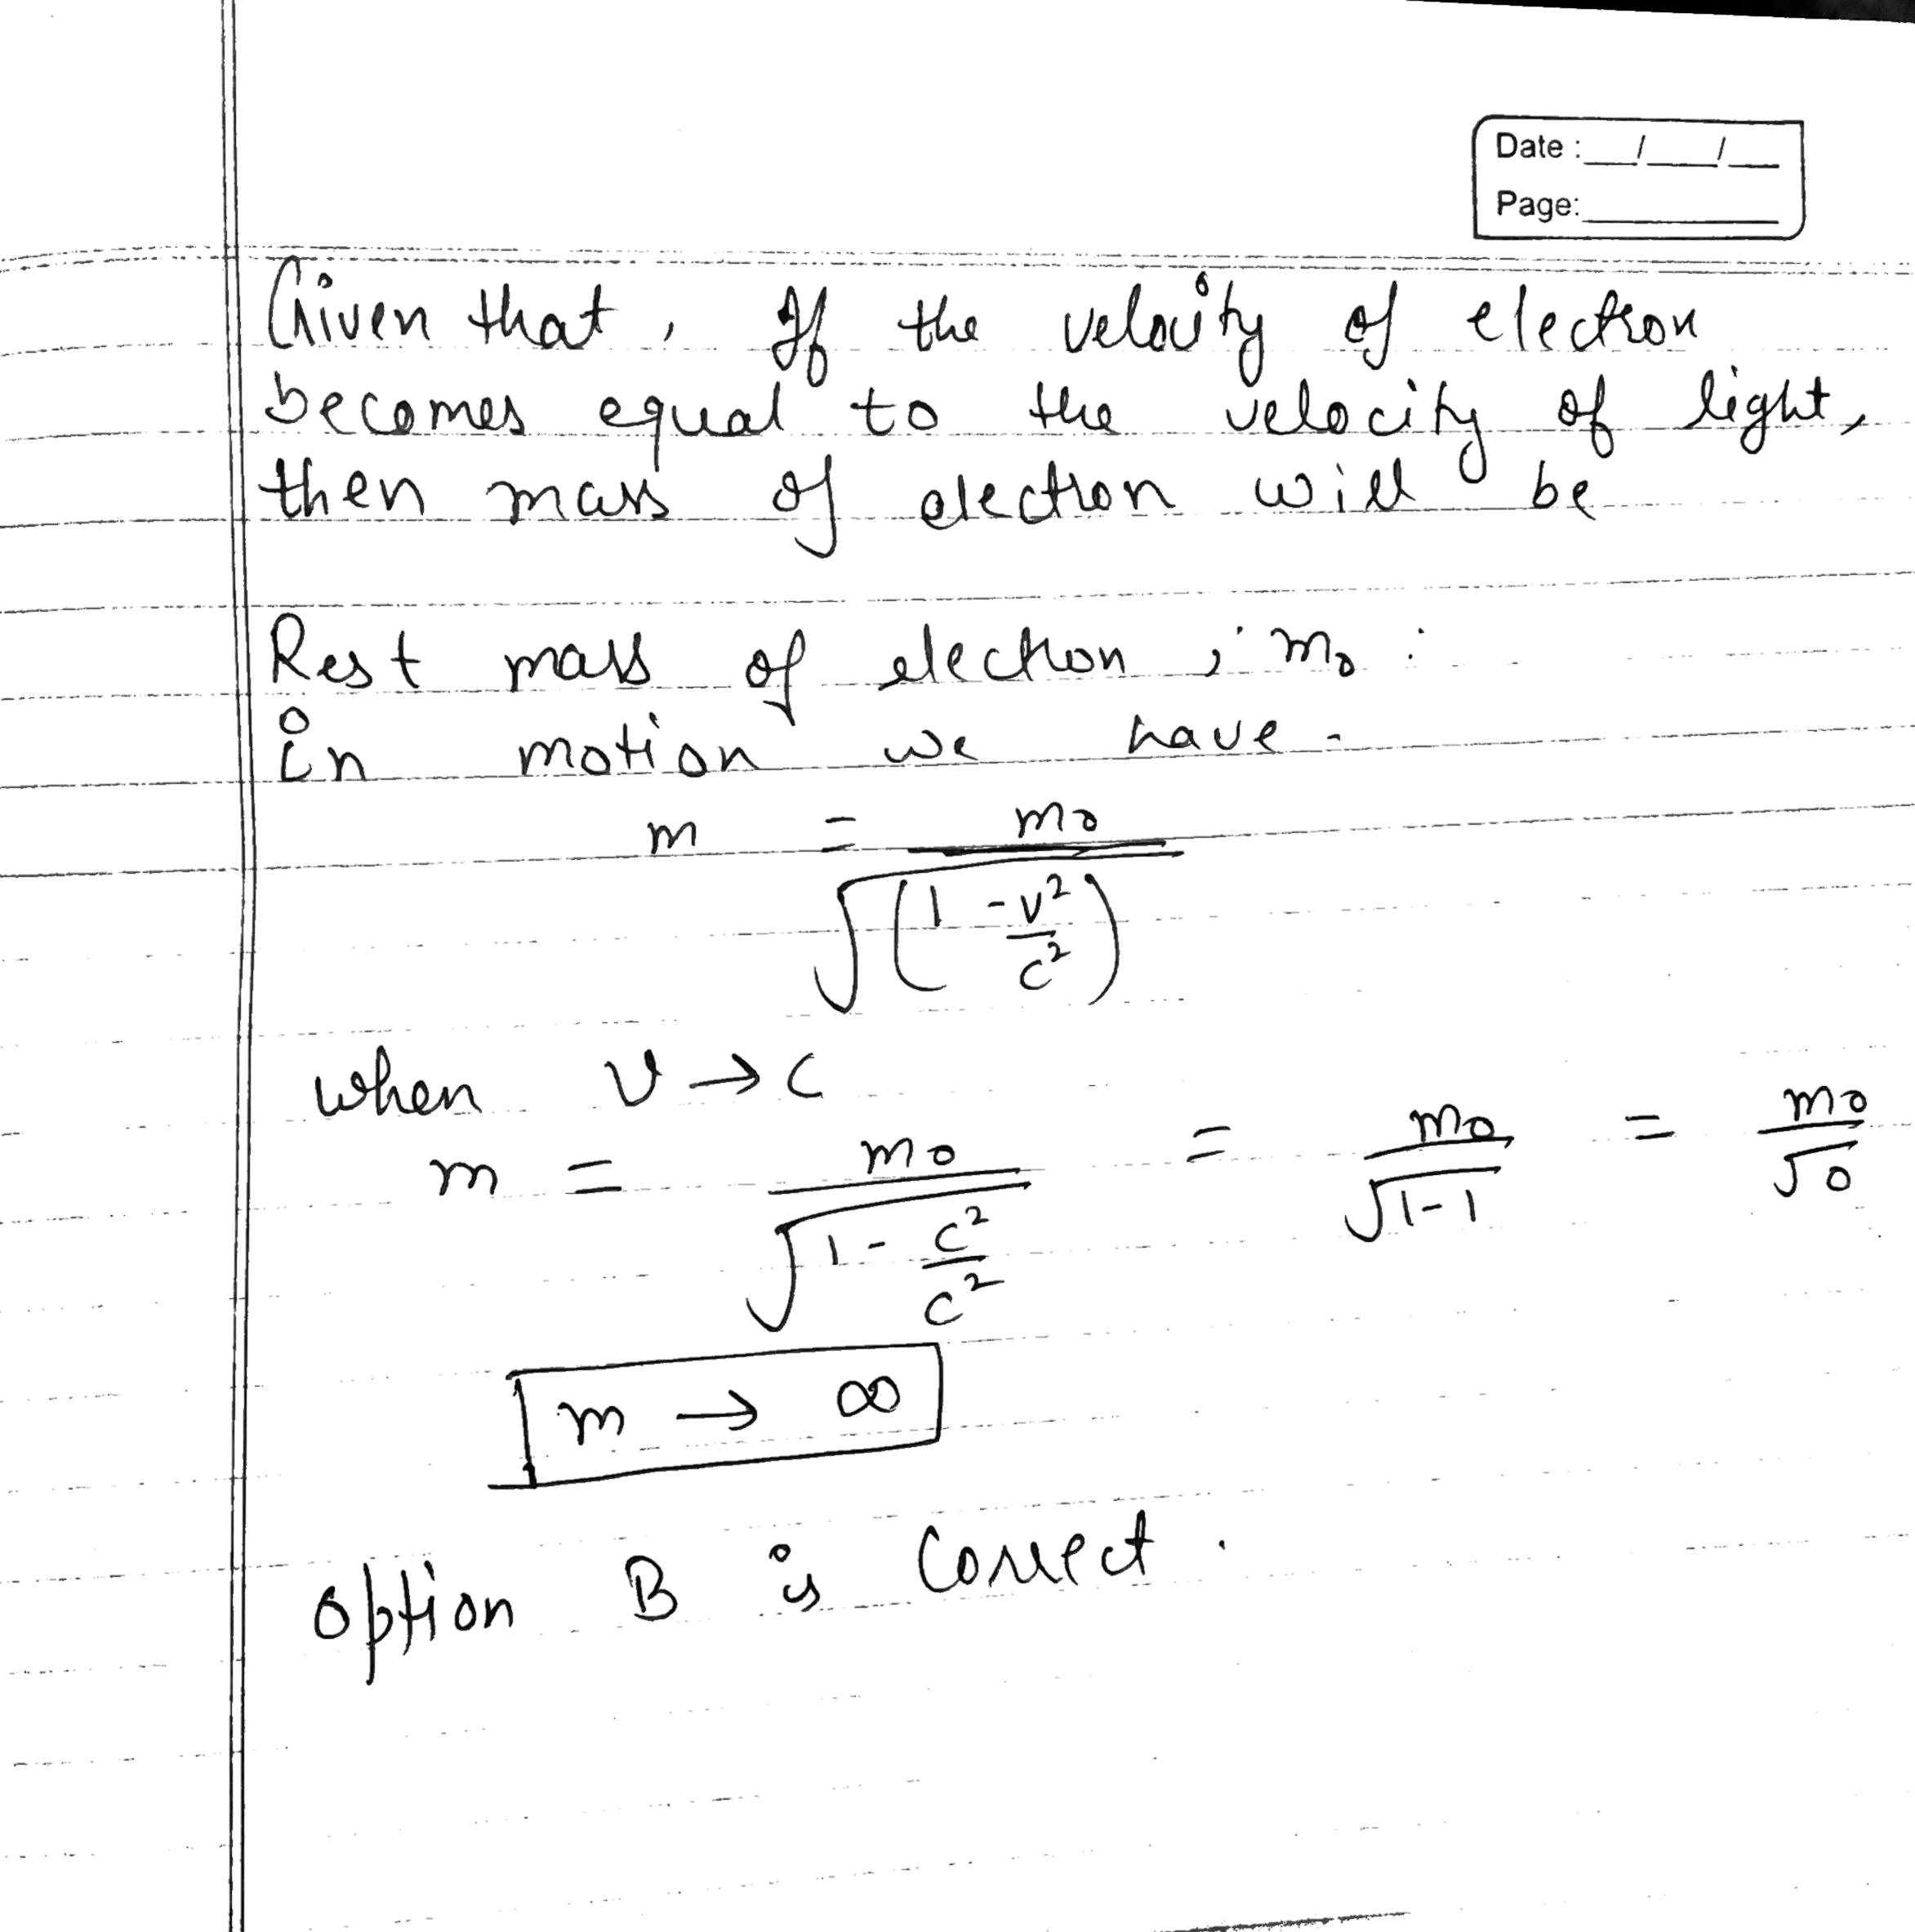 Date : __/__/__
Page: ________
Given that, If the velocity of electron
becomes equal to the velocity of light,
then mass of electron will be
Rest mass of electron, m₀ :
in motion we have -
m = m₀ / √(1 - v²/c²)
when v → c
m = m₀ / √(1 - c²/c²) = m₀ / √(1-1) = m₀ / √0
m → ∞
option B is correct.